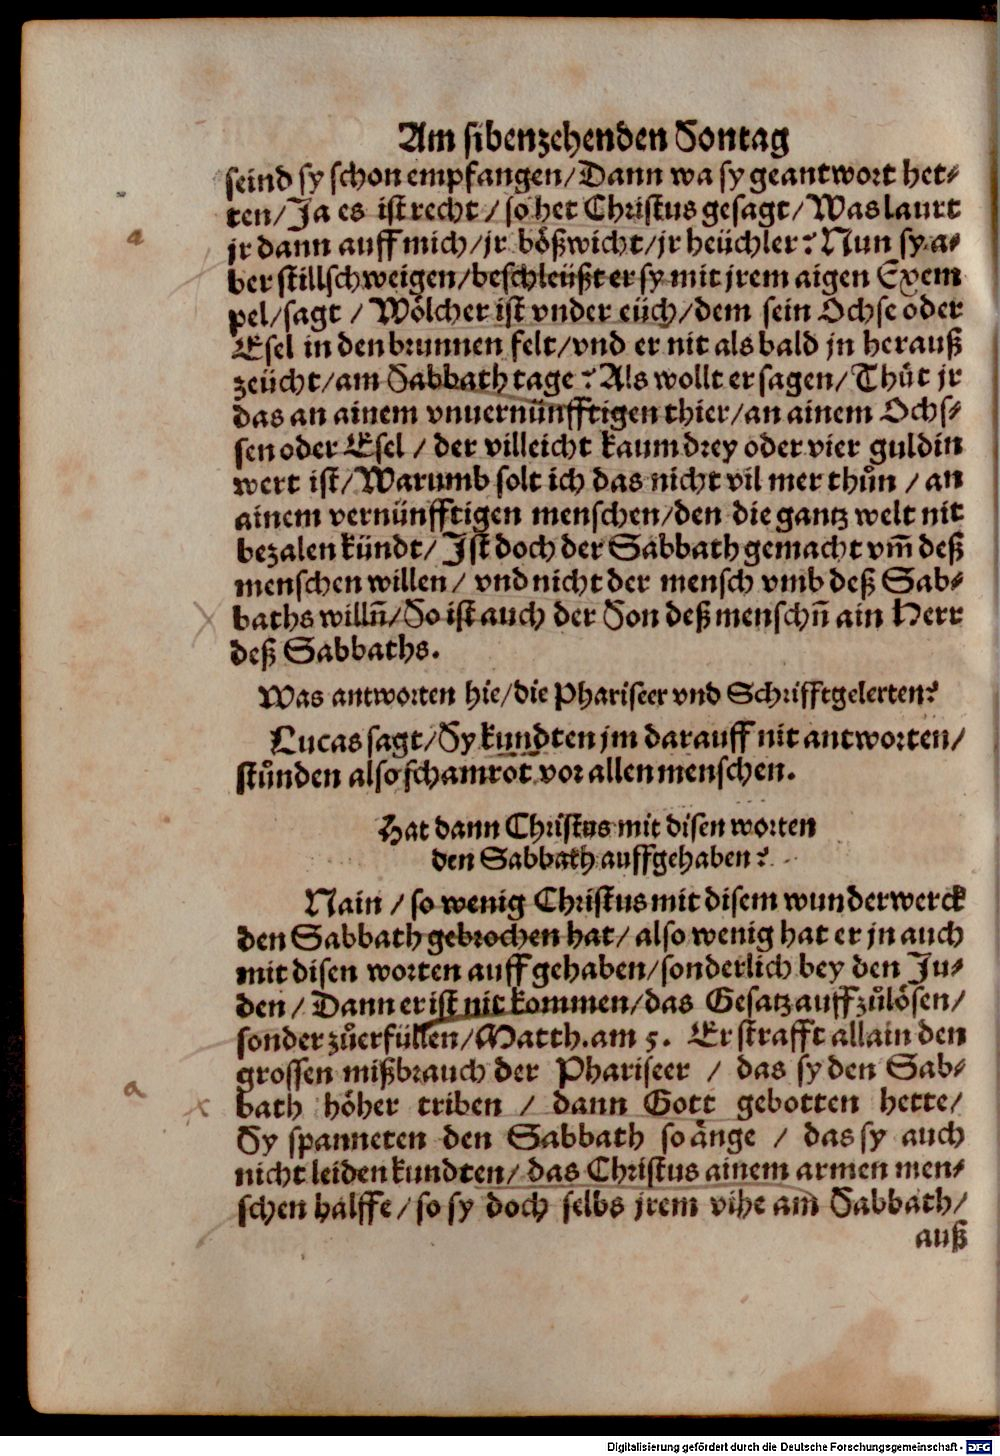 Am sibenzehenden Sontag
seind sy schon empfangen/Dann wa sy geantwort het⸗
ten/Ja es ist recht/so het Christus gesagt/Was laurt
jr dann auff mich/jr bößwicht/jr heüchler? Nun sy a⸗
ber stillschweigen/beschleüßt er sy mit jrem aigen Exem
pel/sagt/Wölcher ist vnder eüch/dem sein Ochse oder
Esel in den brunnen felt/vnd er nit als bald jn herauß
zeücht/am Sabbath tage? Als wollt er sagen/Thůt jr
das an ainem vnuernünfftigen thier/an ainem Ochs⸗
sen oder Esel/der villeicht kaum drey oder vier guldin
wert ist/Warumb solt ich das nicht vil mer thůn/an
ainem vernünfftigen menschen/den die gantz welt nit
bezalen kündt/Jst doch der Sabbath gemacht vm̃ deß
menschen willen/vnd nicht der mensch vmb deß Sab⸗
baths willñ/So ist auch der Son deß menschñ ain Herr
deß Sabbaths.
Was antworten hie/die Phariseer vnd Schrifftgelerten?
Lucas sagt/Sy kundten jm darauff nit antworten/
stůnden also schamrot vor allen menschen.
Hat dann Christus mit disen worten
den Sabbath auffgehaben?
Nain/so wenig Christus mit disem wunderwerck
den Sabbath gebrochen hat/also wenig hat er jn auch
mit disen worten auffgehaben/sonderlich bey den Ju⸗
den/Dann er ist nit kommen/das Gesatz auffzůlösen/
sonder zůerfüllen/Matth. am 5. Er strafft allain den
grossen mißbrauch der Phariseer/das sy den Sab⸗
bath höher triben/dann Gott gebotten hette/
Sy spanneten den Sabbath so änge/das sy auch
nicht leiden kundten/das Christus ainem armen men⸗
schen halffe/so sy doch selbs jrem vihe am Sabbath/
auß
a
a
Digitalisierung gefördert durch die Deutsche Forschungsgemeinschaft - DFG